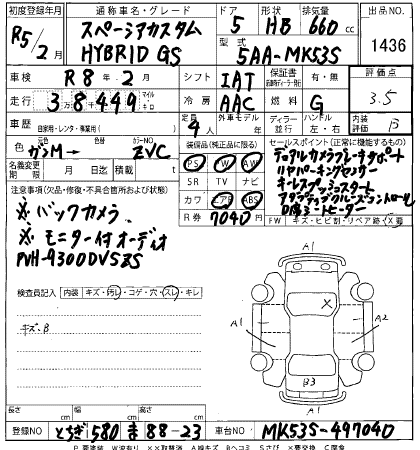 初度登録年月 通称車名・グレード ドア 形状 排気量 出品NO.
R5/2月 スペーシアカスタム HYBRID GS 5 HB 660cc 1436
型式 5AA-MK53S
車検 R8年2月 シフト IAT 保証書 有・無 評価点
走行 38449 マイル キロ 冷房 AAC 燃料 G 3.5
車歴 自家用・レンタ・事業用( ) 定員 4人 外車モデル 年 ディーラー 並行 ハンドル 左・右 内装 評価 B
色 ガンM→ カラーNO. ZVC 装備品(純正品に限る) セールスポイント(正常に機能するもの)
名義変更期限 月 日 積載 t PS PW AW デュアルカメラブレーキサポート
注意事項(欠品・修復・不具合箇所および改造など) SR TV ナビ リヤパーキングセンサー
※バックカメラ カワ エアB ABS キーレスプッシュスタート
※モニター付オーディオ R券 7040円 アダプティブクルーズコントロール
PVH-9300DVSZS D席シートヒーター
FW キズ・ヒビ割・リペア跡・X要
検査員記入 内装 キズ・汚レ・コゲ・穴・スレ・キレ
キズ・B
A1
X
A1 A2
B3
A1
長さ cm 幅 cm 高さ cm
登録NO とちぎ 580 ま 88-23 車台NO MK53S-497040
P要塗装 W波有り XX取替済 A線キズ Bヘコミ Sさび X要交換 C腐食